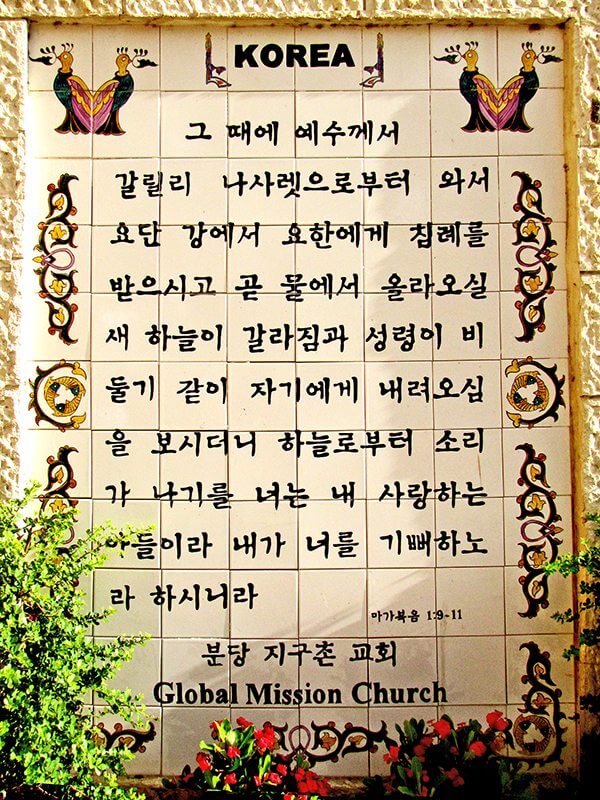 KOREA
그 때에 예수께서
갈릴리 나사렛으로부터 와서
요단 강에서 요한에게 침례를
받으시고 곧 물에서 올라오실
새 하늘이 갈라짐과 성령이 비
둘기 같이 자기에게 내려오심
을 보시더니 하늘로부터 소리
가 나기를 너는 내 사랑하는
아들이라 내가 너를 기뻐하노
라 하시니라
마가복음 1:9-11
분당 지구촌 교회
Global Mission Church